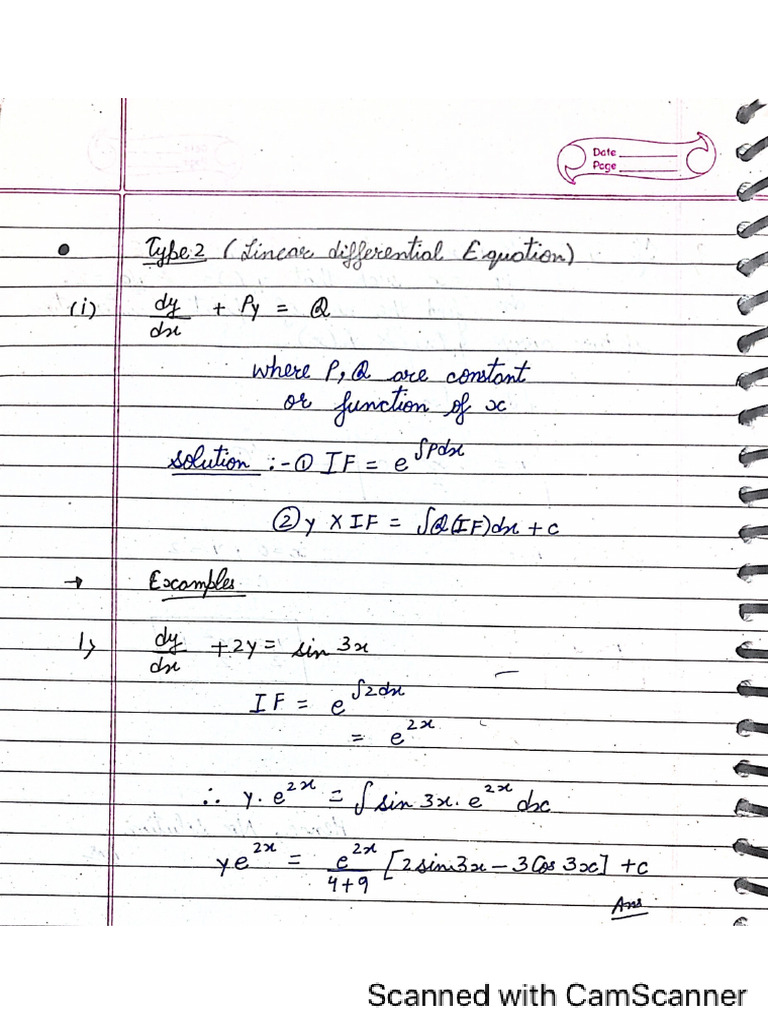 Date
Page
• Type:2 (Linear differential Equation)
(i) dy/dx + Py = Q
where P, Q are constant
or function of x
solution :- ① IF = e^∫Pdx
② y × IF = ∫Q(IF)dx + c
→ Examples
1) dy/dx + 2y = sin 3x
IF = e^∫2dx
= e^2x
∴ y. e^2x = ∫ sin 3x. e^2x dx
ye^2x = e^2x/4+9 [2sin3x - 3Cos 3x] + c
Ans
Scanned with CamScanner